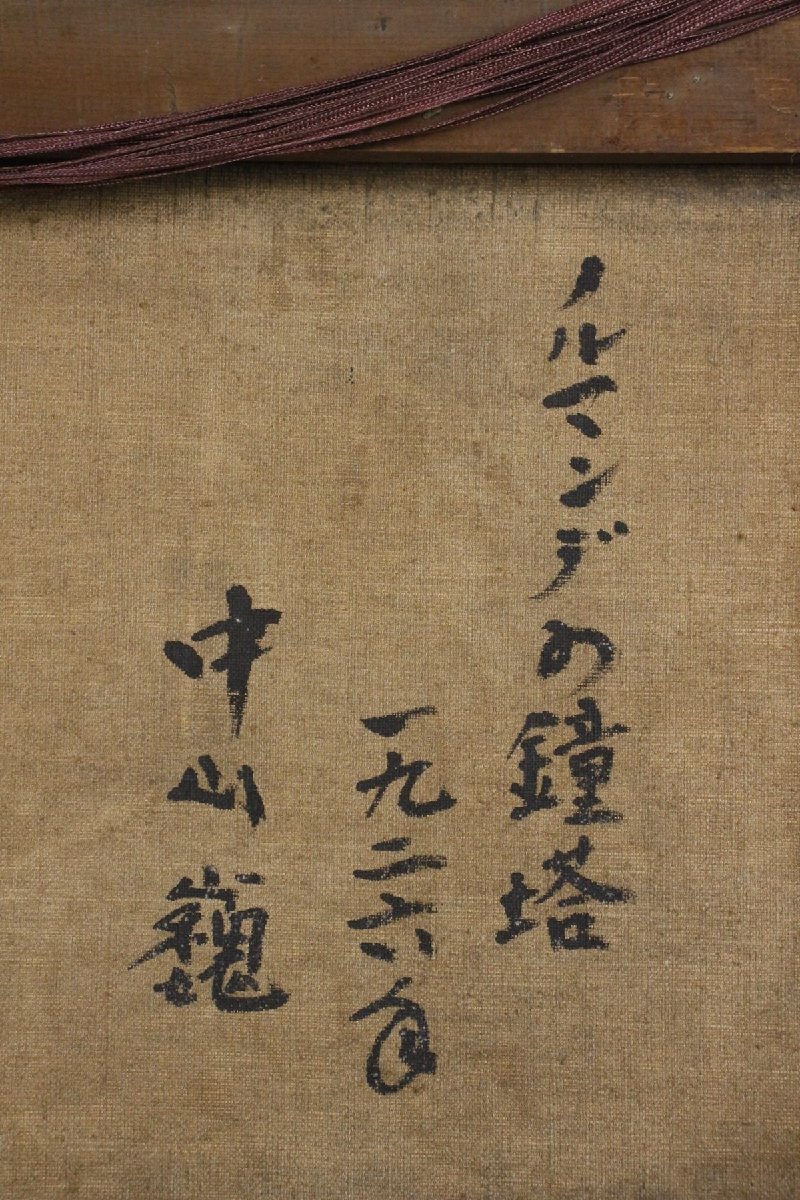 ノルマンデの鐘塔
一九二六年
中山巍